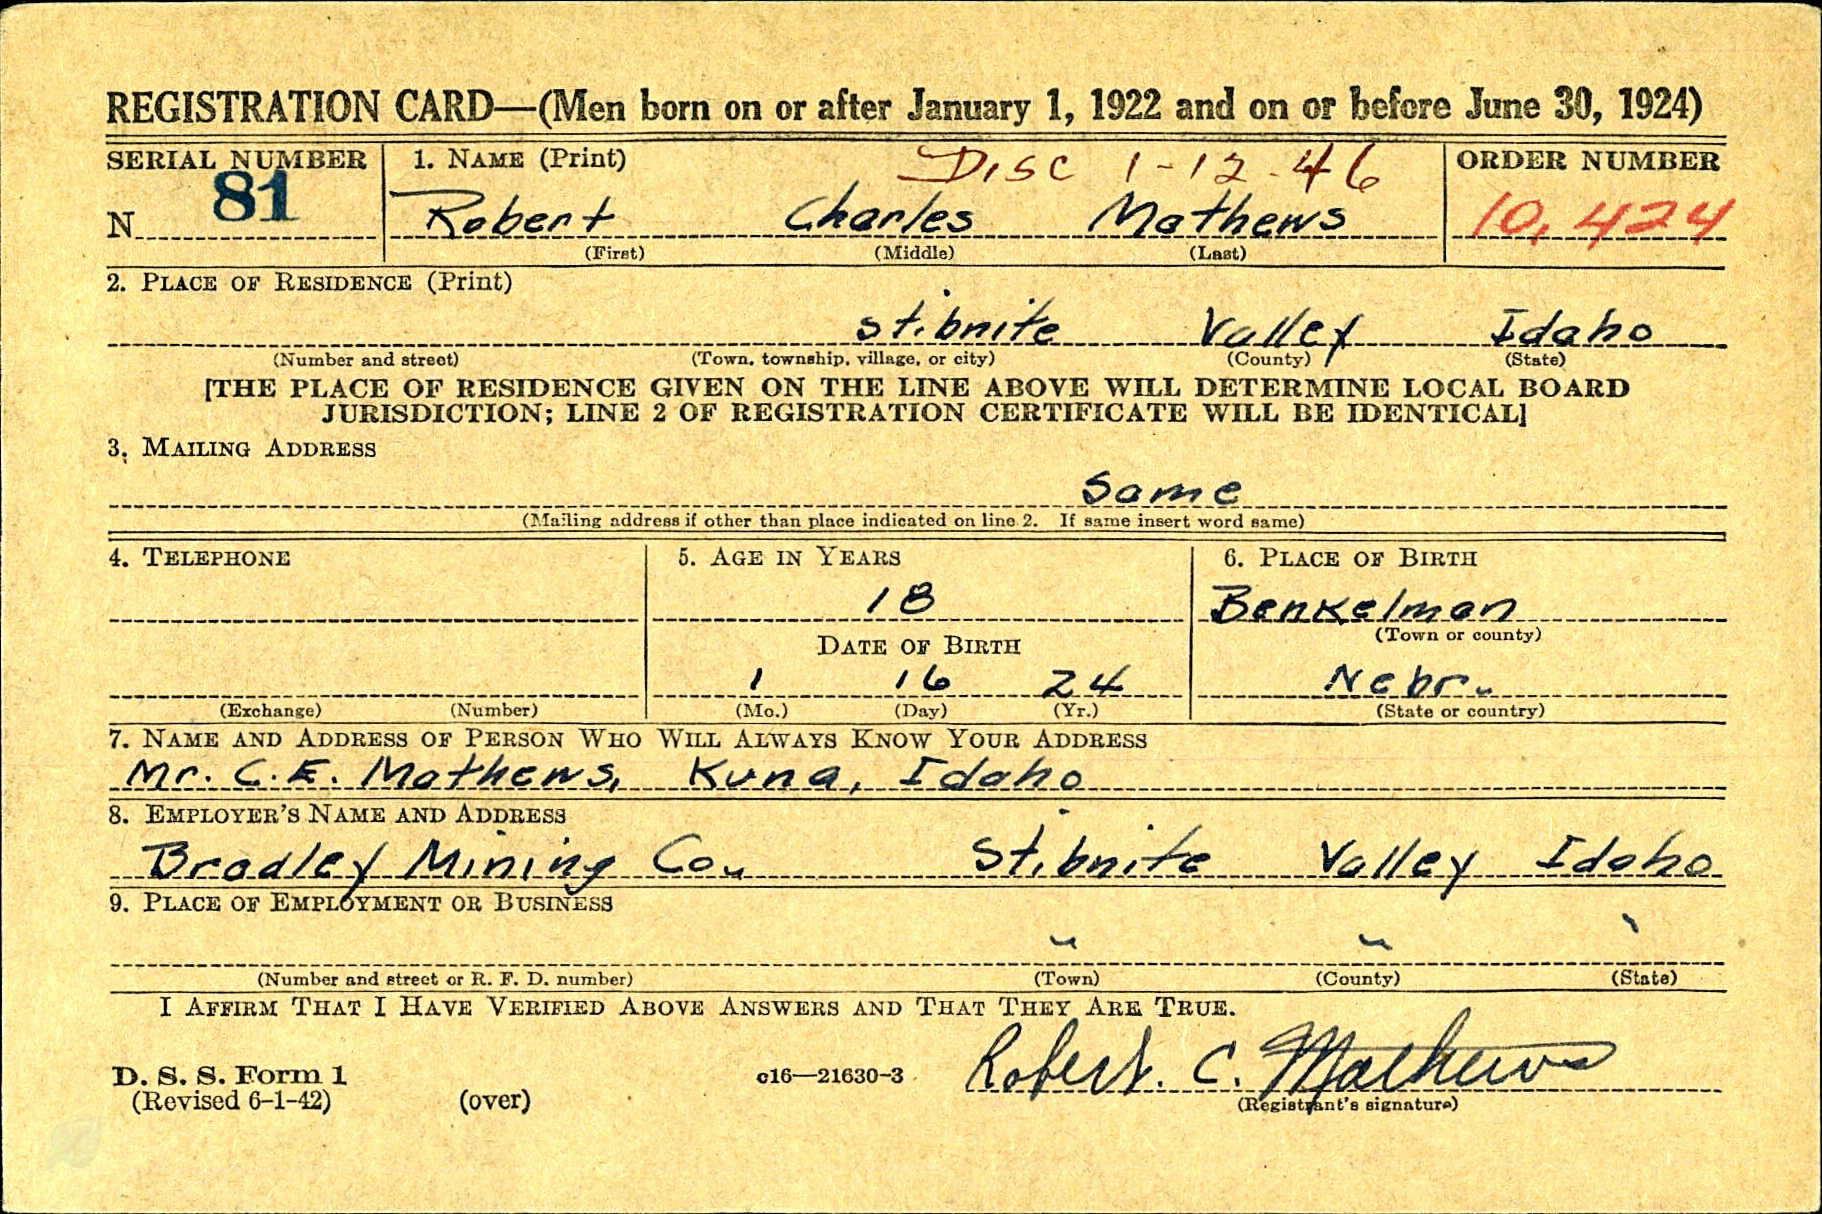 REGISTRATION CARD—(Men born on or after January 1, 1922 and on or before June 30, 1924)
SERIAL NUMBER 1. NAME (Print) DISC 1-12-46 ORDER NUMBER
N 81 Robert Charles Mathews 10,424
(First) (Middle) (Last)
2. PLACE OF RESIDENCE (Print)
Stibnite Valley Idaho
(Number and street) (Town, township, village, or city) (County) (State)
[THE PLACE OF RESIDENCE GIVEN ON THE LINE ABOVE WILL DETERMINE LOCAL BOARD
JURISDICTION; LINE 2 OF REGISTRATION CERTIFICATE WILL BE IDENTICAL]
3. MAILING ADDRESS
Same
(Mailing address if other than place indicated on line 2. If same insert word same)
4. TELEPHONE 5. AGE IN YEARS 6. PLACE OF BIRTH
18 Benkelman
DATE OF BIRTH (Town or county)
1 16 24 Nebr.
(Exchange) (Number) (Mo.) (Day) (Yr.) (State or country)
7. NAME AND ADDRESS OF PERSON WHO WILL ALWAYS KNOW YOUR ADDRESS
Mr. C. E. Mathews, Kuna, Idaho
8. EMPLOYER'S NAME AND ADDRESS
Bradley Mining Co. Stibnite Valley Idaho
9. PLACE OF EMPLOYMENT OR BUSINESS
" " "
(Number and street or R. F. D. number) (Town) (County) (State)
I AFFIRM THAT I HAVE VERIFIED ABOVE ANSWERS AND THAT THEY ARE TRUE.
D. S. S. Form 1 c16—21630-3 Robert. C. Mathews
(Revised 6-1-42) (over) (Registrant's signature)